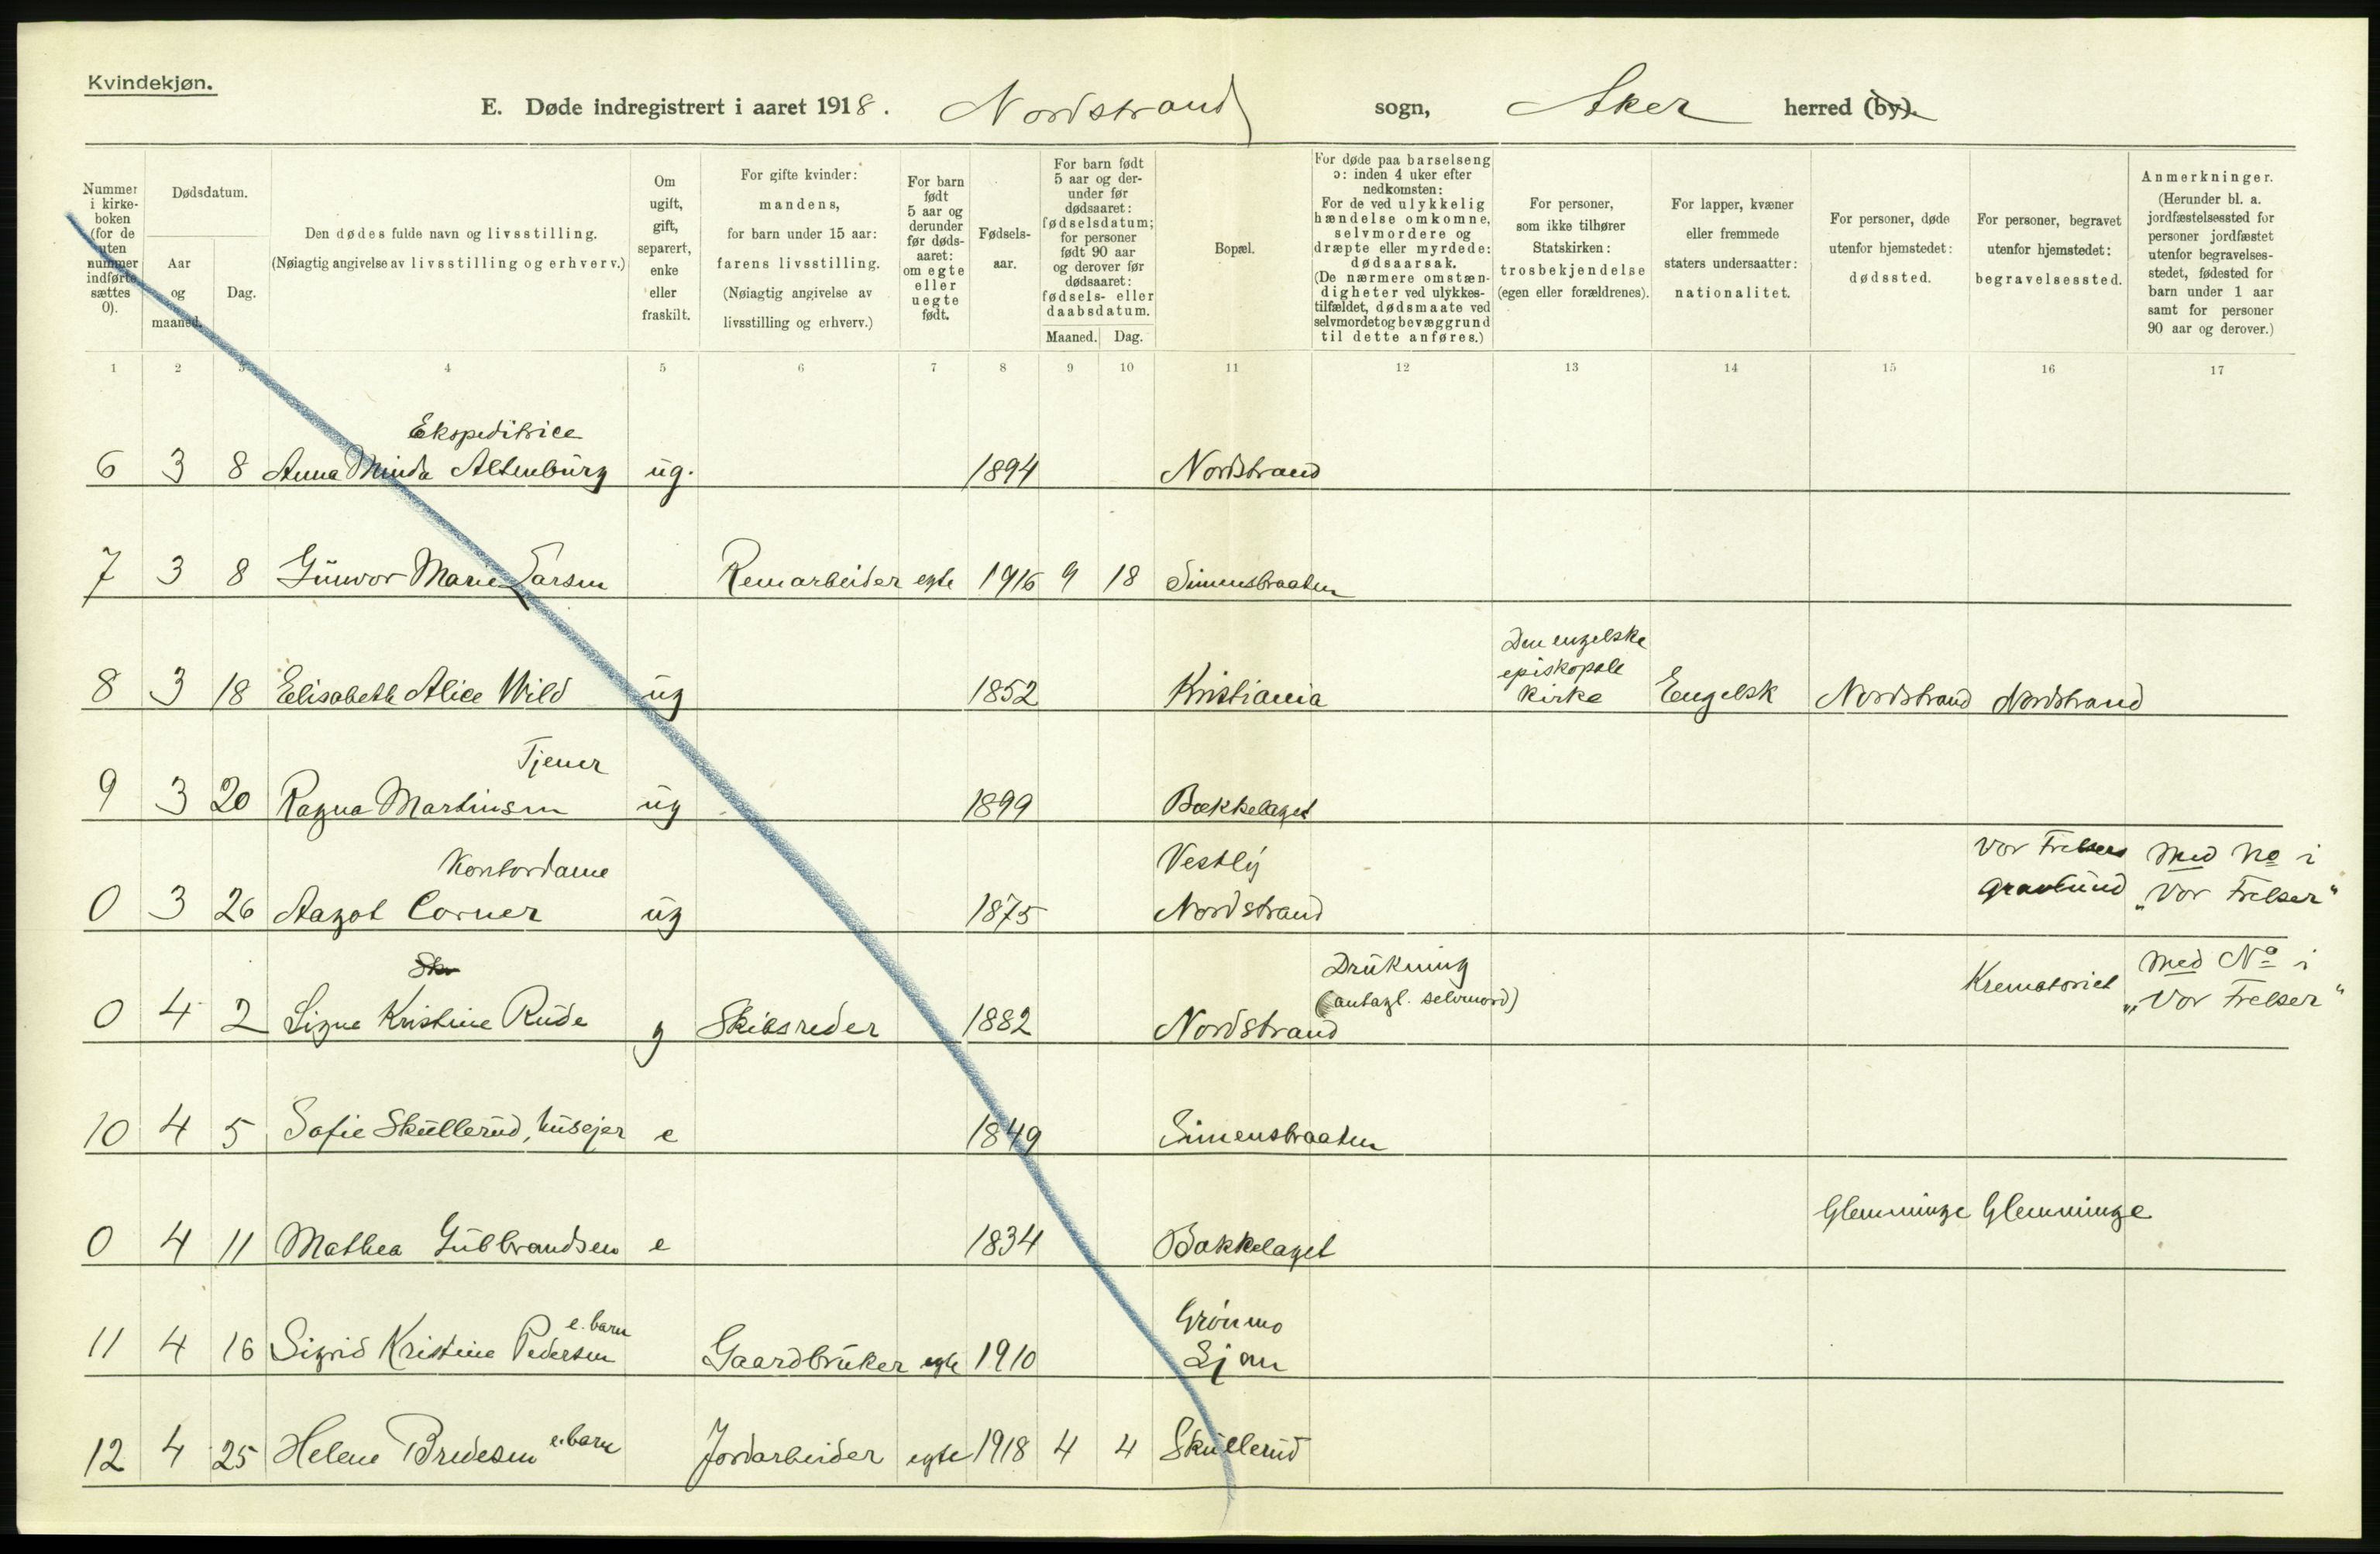 Kvindekjøn.
E. Døde indregistrert i aaret 1918. Nordstrand sogn, Aker herred (by).
Nummer i kirke-boken (for de uten nummer indførte sættes 0).
Dødsdatum.
Aar og maaned.
Dag.
Den dødes fulde navn og livsstilling.
(Nøiagtig angivelse av livsstilling og erhverv.)
Om ugift, gift, separert, enke eller fraskilt.
For gifte kvinder: mandens, for barn under 15 aar: farens livsstilling. (Nøiagtig angivelse av livsstilling og erhverv.)
For barn født 5 aar og derunder før døds-aaret: om egte eller uegte født.
Fødsels-aar.
For barn født 5 aar og der-under før dødsaaret: fødselsdatum; for personer født 90 aar og derover før dødsaaret: fødsels- eller daabsdatum.
Maaned. Dag.
Bopæl.
For døde paa barselseng ɔ: inden 4 uker efter nedkomsten: For de ved ulykkelig hændelse omkomne, selvmordere og dræpte eller myrdede: dødsaarsak. (De nærmere omstæn-digheter ved ulykkes-tilfældet, dødsmaate ved selvmordet og bevæggrund til dette anføres.)
For personer, som ikke tilhører Statskirken: trosbekjendelse (egen eller forældrenes).
For lapper, kvæner eller fremmede staters undersaatter: nationalitet.
For personer, døde utenfor hjemstedet: dødssted.
For personer, begravet utenfor hjemstedet: begravelsessted.
Anmerkninger. (Herunder bl. a. jordfæstelsessted for personer jordfæstet utenfor begravelses-stedet, fødested for barn under 1 aar samt for personer 90 aar og derover.)
1 2 3 4 5 6 7 8 9 10 11 12 13 14 15 16 17
Ekspeditrice
6 3 8 Anna Minda Altenburg ug. 1894 Nordstrand
7 3 8 Gunvor Marie Larsen Remarbeider egte 1916 9 18 Simensbraaten
Den engelske
episkopale
8 3 18 Elisabeth Alice Wild ug 1852 Kristiania kirke Engelsk Nordstrand Nordstrand
Tjener
9 3 20 Ragna Martinsen ug 1899 Bækkelaget
Kontordame Vestly Vor Frelsers Med No i
0 3 26 Aagot Corner ug 1875 Nordstrand Gravlund „Vor Frelser“
Sk Drukning Krematoriet Med No i
(antagl. selvmord) „Vor Frelser“
0 4 2 Signe Kristine Rude g Skibsreder 1882 Nordstrand
10 4 5 Sofie Skullerud, husejer e 1849 Simensbraaten
Glemminge Glemminge
0 4 11 Mathea Gulbrandsen e 1834 Bækkelaget
e. barn Grønmo
11 4 16 Sigrid Kristine Pedersen Gaardbruker egte 1910 Ljan
12 4 25 Helene Bredesen e. barn Jordarbeider egte 1918 4 4 Skullerud